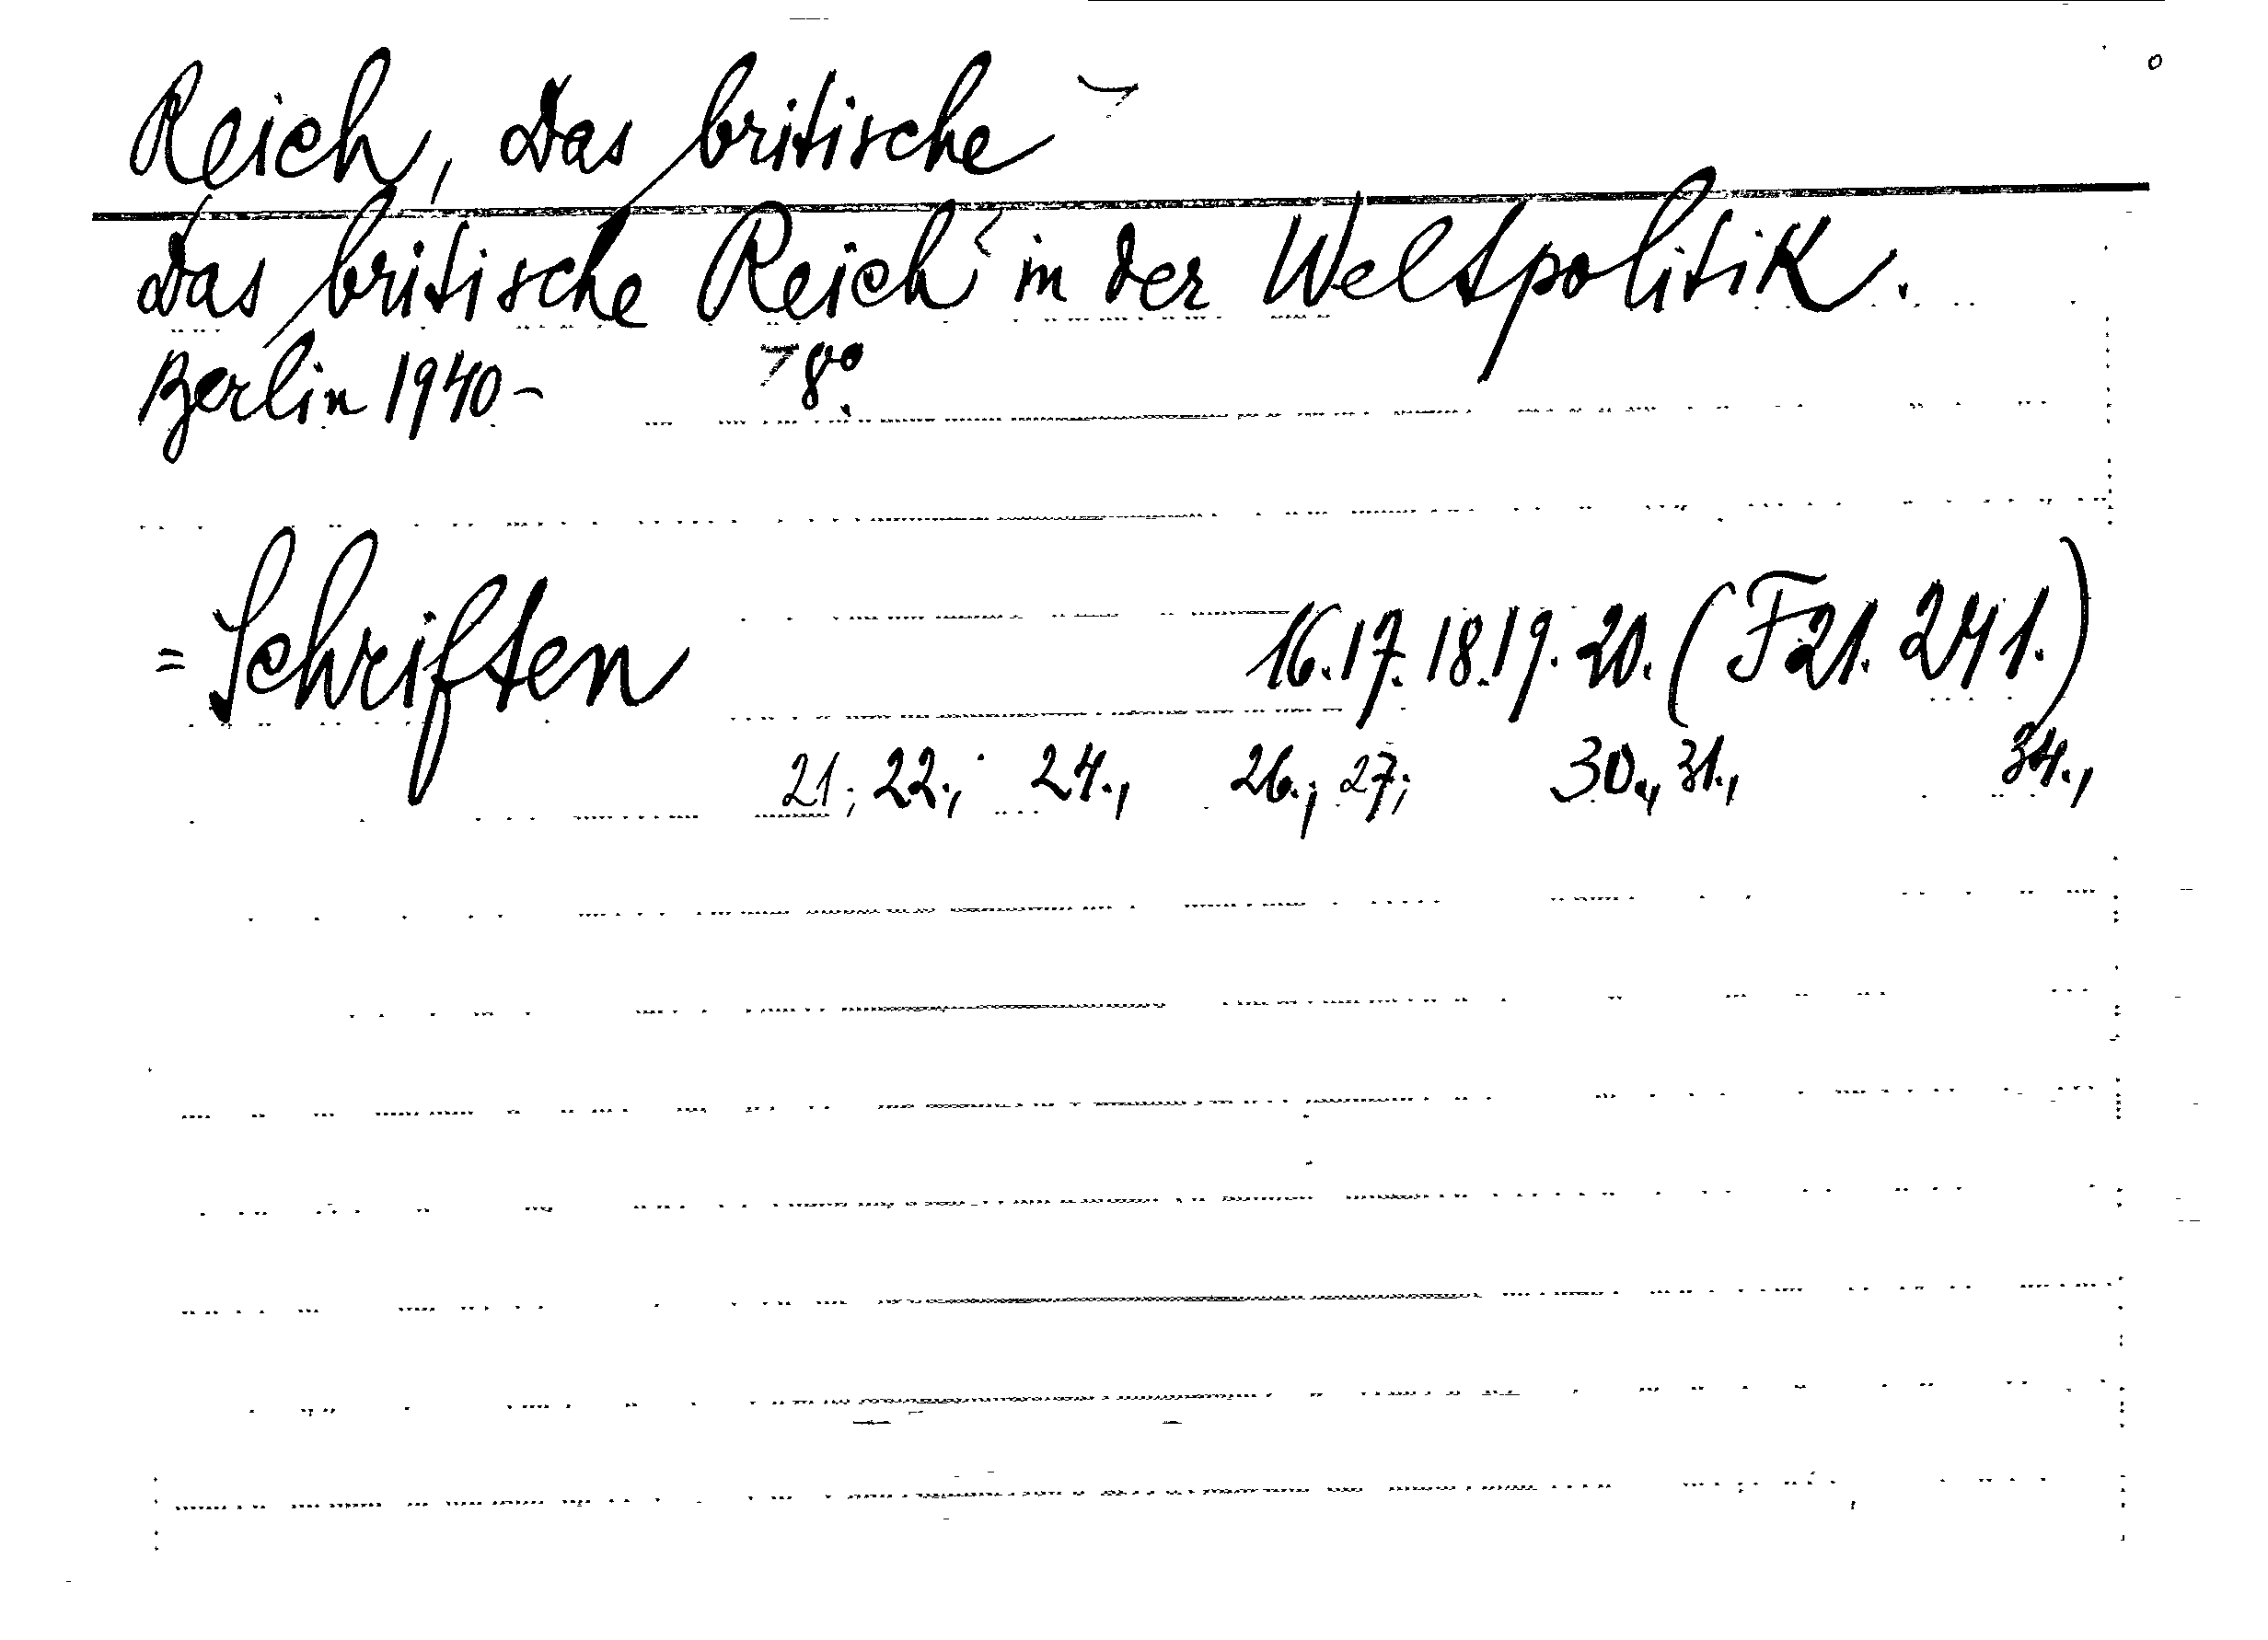 Reich, Das britische
Das britische Reich in der Weltpolitik.
Berlin 1940- 8°.
= Schriften 16. 17. 18. 19. 20. (F 21. 241.)
21; 22.; 24., 26.; 27; 30., 31., 34.,